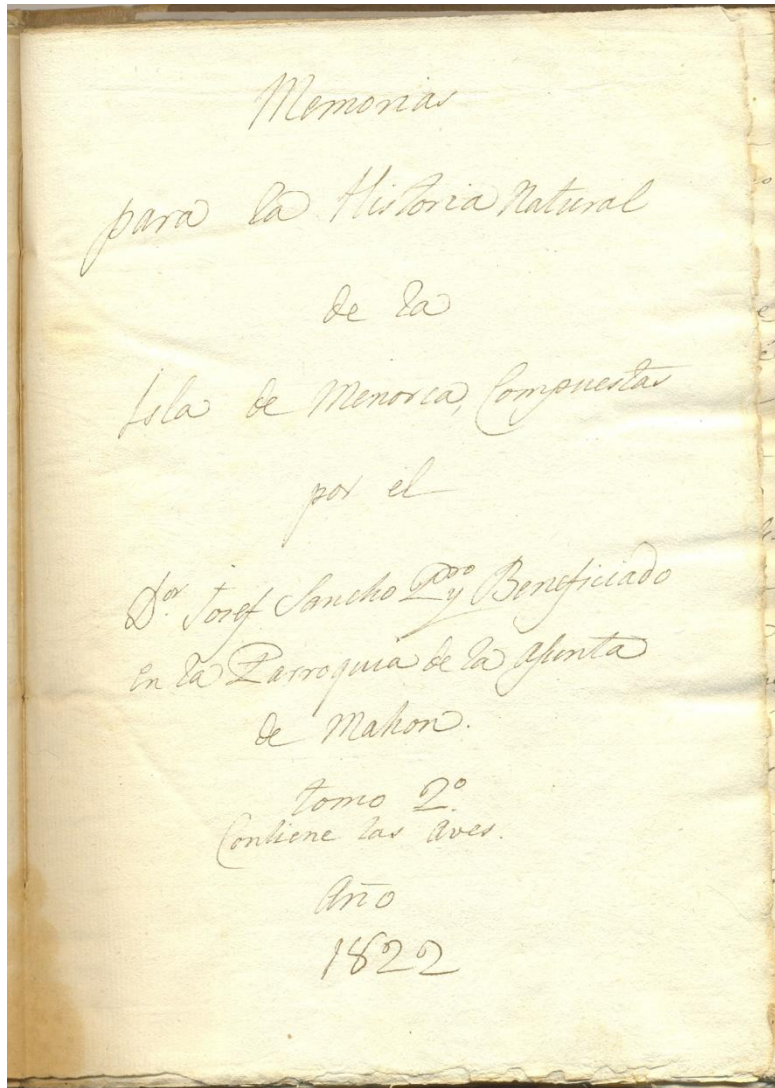 Memorias
para la Historia Natural
de la
Isla de Menorca, Compuestas
por el
Dor. Josef Sancho Pbro y Beneficiado
en la Parroquia de la Asunta
de Mahon.
tomo 2º.
Contiene las Aves.
Año
1822